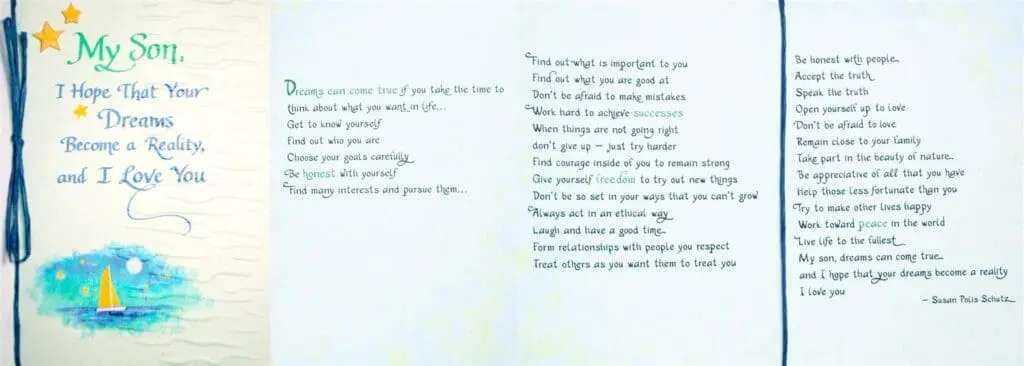 My Son,
I Hope That Your
Dreams
Become a Reality,
and I Love You
Dreams can come true if you take the time to
think about what you want in life...
Get to know yourself
Find out who you are
Choose your goals carefully
Be honest with yourself
Find many interests and pursue them...
Find out what is important to you
Find out what you are good at
Don't be afraid to make mistakes
Work hard to achieve successes
When things are not going right
don't give up — just try harder
Find courage inside of you to remain strong
Give yourself freedom to try out new things
Don't be so set in your ways that you can't grow
Always act in an ethical way
Laugh and have a good time
Form relationships with people you respect
Treat others as you want them to treat you
Be honest with people
Accept the truth
Speak the truth
Open yourself up to love
Don't be afraid to love
Remain close to your family
Take part in the beauty of nature
Be appreciative of all that you have
Help those less fortunate than you
Try to make other lives happy
Work toward peace in the world
Live life to the fullest
My son, dreams can come true
and I hope that your dreams become a reality
I love you
– Susan Polis Schutz